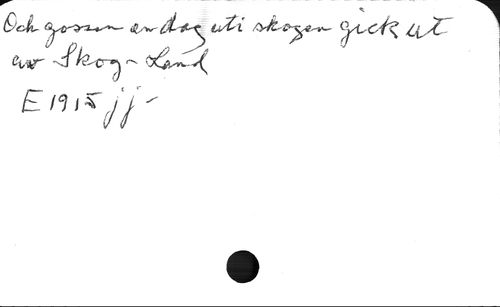 Och gossen en dag uti skogen gick ut
av Skog-Land
E 1915 jj -